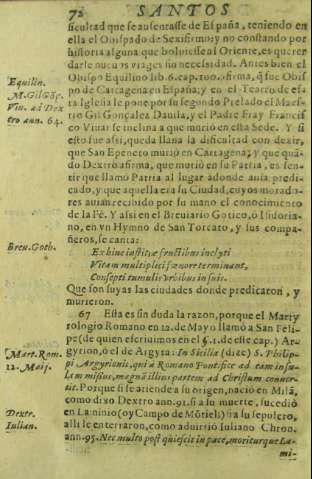 72 SANTOS
ficultad que se ausentasse de España, teniendo en
ella el Obispado de Sexifirmo y no constando por
historia alguna que boluiesse al Oriente, es querer
darle nueuos viages sin necessidad. Antes bien el
Equilin.
Obispo Equilino lib. 6. cap. 100. afirma, q̃ fue Obis-
M. Gil Gõç.
po de Cartagena en España; y en el Teatro de esta
Viu. ad Dex
Iglesia le pone por su segundo Prelado el Maes-
tro ann. 64.
tro Gil Gonçalez Dauila, y el Padre Fray Francis
co Viuar se inclina a que murio en esta Sede. Y si
esto fue assi, queda llana la dificultad con dezir,
que San Epeneto murio en Cartagena; y que quã-
do Dextro afirma, que murio en su Patria, es sen-
tir que llamò Patria al lugar adonde auia predi-
cado, y que aquella era su Ciudad, cuyos morado-
res auian recibido por su mano el conocimiento
de la Fè. Y assi en el Breuiario Gotico, o Isidoria-
no, en vn Hymno de San Torcato, y sus compa-
ñeros, se canta:
Breu. Goth.
Ex hinc iustitiæ fructibus inclyti
Vitam multiplici fœnore terminant,
Consepti tumulis Vrbibus in suis.
Que son suyas las ciudades donde predicaron, y
murieron.
67 Esta es sin duda la razon, porque el Marty
rologio Romano en 12. de Mayo llamò a San Feli-
pe (de quien escriuimos en el §. 1. de este cap.) Ar-
gyrion, ò el de Argyra: In Sicilia (dize) S. Philip-
Mart. Rom.
pi Argyrionis, qui à Romano Pontifice ad eam insu-
12. Maij.
lam missus, magnã illius partem ad Christum conuer-
tit. Porque si se atiende a su origen, naciò en Milã,
como dixo Dextro ann. 91. si a su muerte, sucediò
Dextr.
en Laminio (oy Campo de Mõtiel) si a su sepulcro,
Iulian.
alli le enterraron, como aduirtiò Iuliano Chron.
ann. 95. Nec multo post quiescit in pace, moriturque La-
mi-